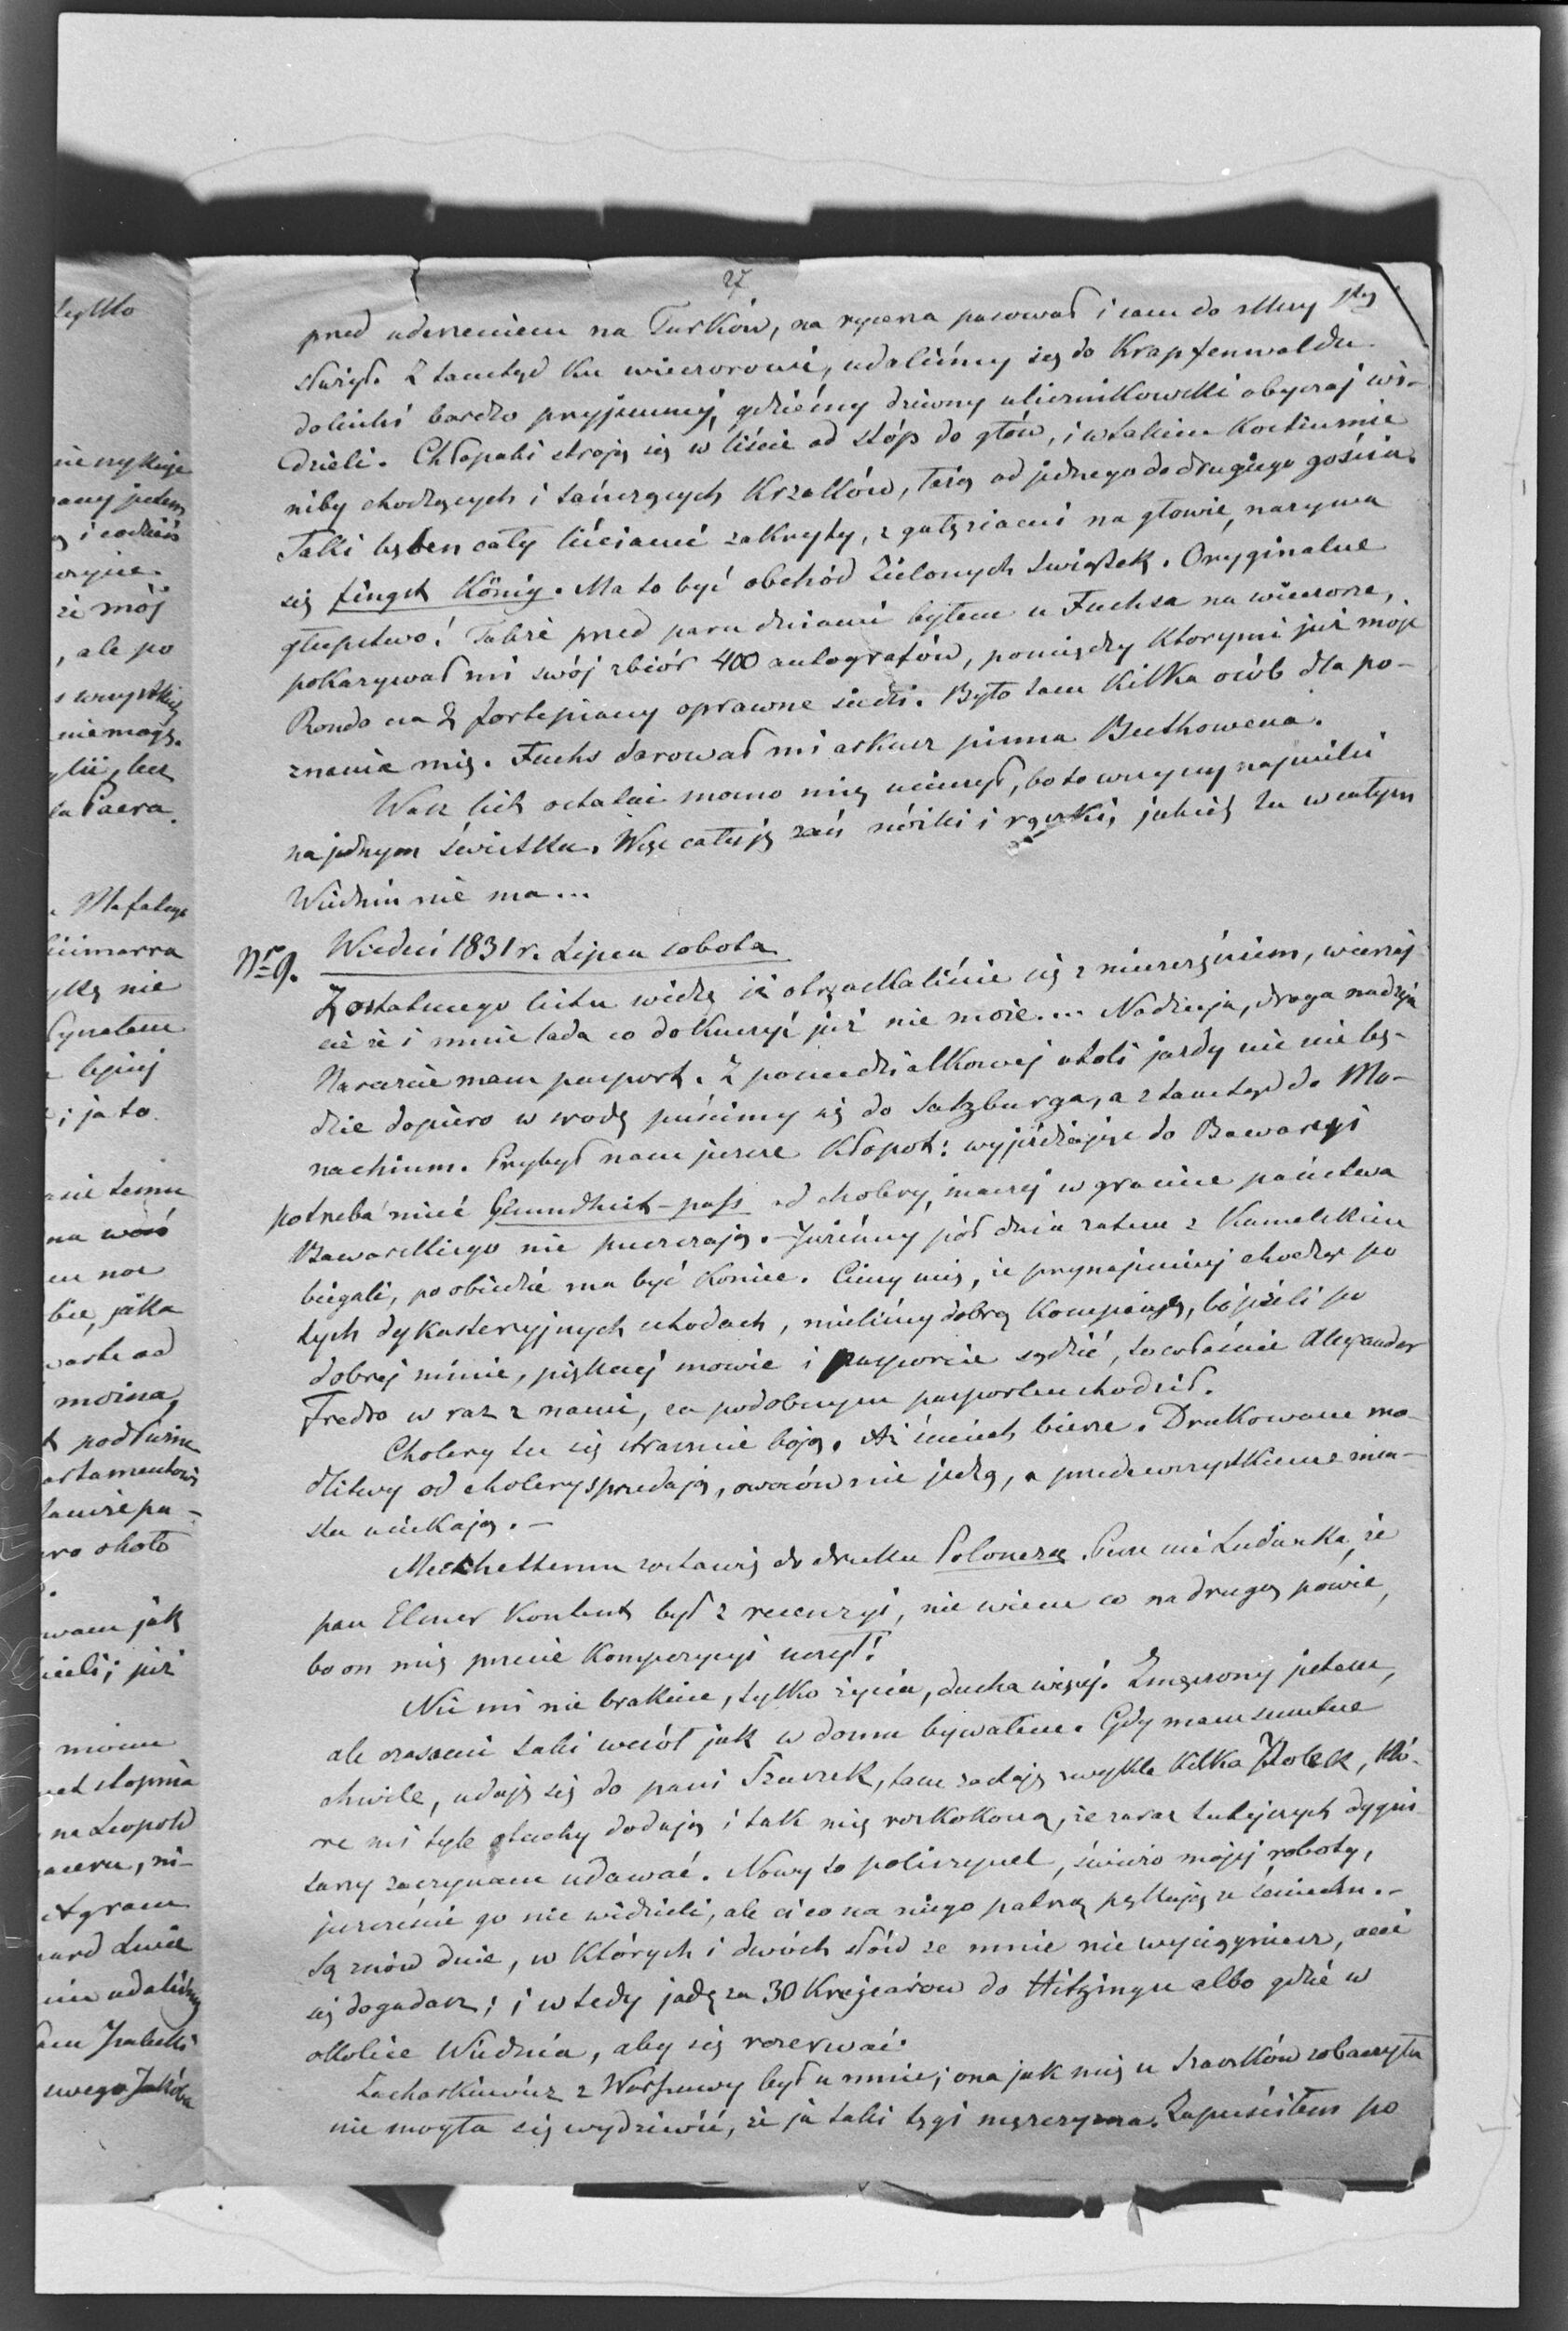 27
przed uderzeniem na Turków, na rycerza pasował i sam do mszy Stej
służył. Z tamtąd ku wieczorowi, udaliśmy się do Krapfenwaldu
dolinki bardzo przyjemnej, gdzieśmy dziwny ulicznikowski obyczaj wi-
dzieli. Chłopaki stroją się w liście od stóp do głów, i w takim kostiumie
niby chodzących i tańczących krzaków, łażą od jednego do drugiego gościa.
Taki bęben cały liściami zakryty, z gałęziami na głowie, nazywa
się fingst König. Ma to być obchód Zielonych Świątek. Oryginalne
głupstwo! Także przed paru dniami byłem u Fuchsa na wieczorze,
pokazywał mi swój zbiór 400 autografów, pomiędzy któremi już moje
Rondo na 2 fortepiany oprawne siedzi. Było tam kilka osób dla po-
znania mię. Fuchs darował mi arkusz pisma Beethowena.
Wasz list ostatni mocno mię ucieszył, bo to wszyscy najmilsi
na jednym świstku. Więc całuję zań nóżki i rączki, jakich tu w całym
Wiedniu nie ma...
Nr 9.
Wiedeń 1831 r. Lipca sobota
Z ostatniego listu widzę że obyczailiście się z nieszczęściem, wierzaj-
cie że i mnie lada co dokuczyć już nie może.... Nadzieja, droga nadzieja
Nareszcie mam paszport. Z poniedziałkowej atoli jazdy nic nie bę-
dzie dopiero w środę puścimy się do Saltzburga, a z tamtąd do Mo-
nachium. Przybył nam jeszcze kłopot: wyjeżdżając do Bawaryi
potrzeba mieć Gesundheit-pass od cholery, inaczej w granice państwa
Bawarskiego nie puszczają. Jużeśmy pół dnia zatem z Kumelskim
biegali, po obiedzie ma być koniec. Cieszy mię, że przynajmniej chodząc po
tych dykasteryjnych schodach, mieliśmy dobrą kompanją, bo jeżeli po
dobrej minie, pięknej mowie i paszporcie sądzić, to właśnie Alexander
Fredro w raz z nami, za podobnym paszportem chodził.
Cholery tu się strasznie boją. Aż śmiech bierze. Drukowane mo-
dlitwy od cholery sprzedają, owoców nie jedzą, a przedewszystkiem z mia-
sta uciekają. —
Mechettemu zostawię do druku Polonezę. Pisze mi Ludwika, że
pan Elsner kontent był z recenzyi, nie wiem co na drugą powie,
bo on mię przecie kompozycyi uczył!
Nic mi nie brakuje, tylko życia, ducha więcej. Zmęczony jestem,
ale czasami taki wesół jak w domu bywałem. Gdy mam smutne
chwile, udaję się do pani Szaszek, tam zastaję zwykle kilka Polek, któ-
re mi tyle otuchy dodają i tak mię rozkokoszą, że zaraz tutejszych dygni-
tarzy zaczynam udawać. Nowy to poliszynel, świeżo mojej roboty,
jeszczeście go nie widzieli, ale ci co na niego patrzą pękają ze śmiechu. –
Są znów dnie, w których i dwóch słów ze mnie nie wyciągniesz, ani
się dogadasz; i wtedy jadę za 30 Krejcarów do Hitzingu albo gdzie w
okolice Wiednia, aby się rozerwać.
Zacharkiewicz z Warszawy był u mnie; ona jak mię u Szaszków zobaczyła
nie mogła się wydziwić, że ja taki tęgi mężczyzna. Zapuściłem po
tylko
że mój
, ale po
nie mogę.
la Paera.
i ja to
na woń
możną,
około
jak
już
stopnia
na Leopold